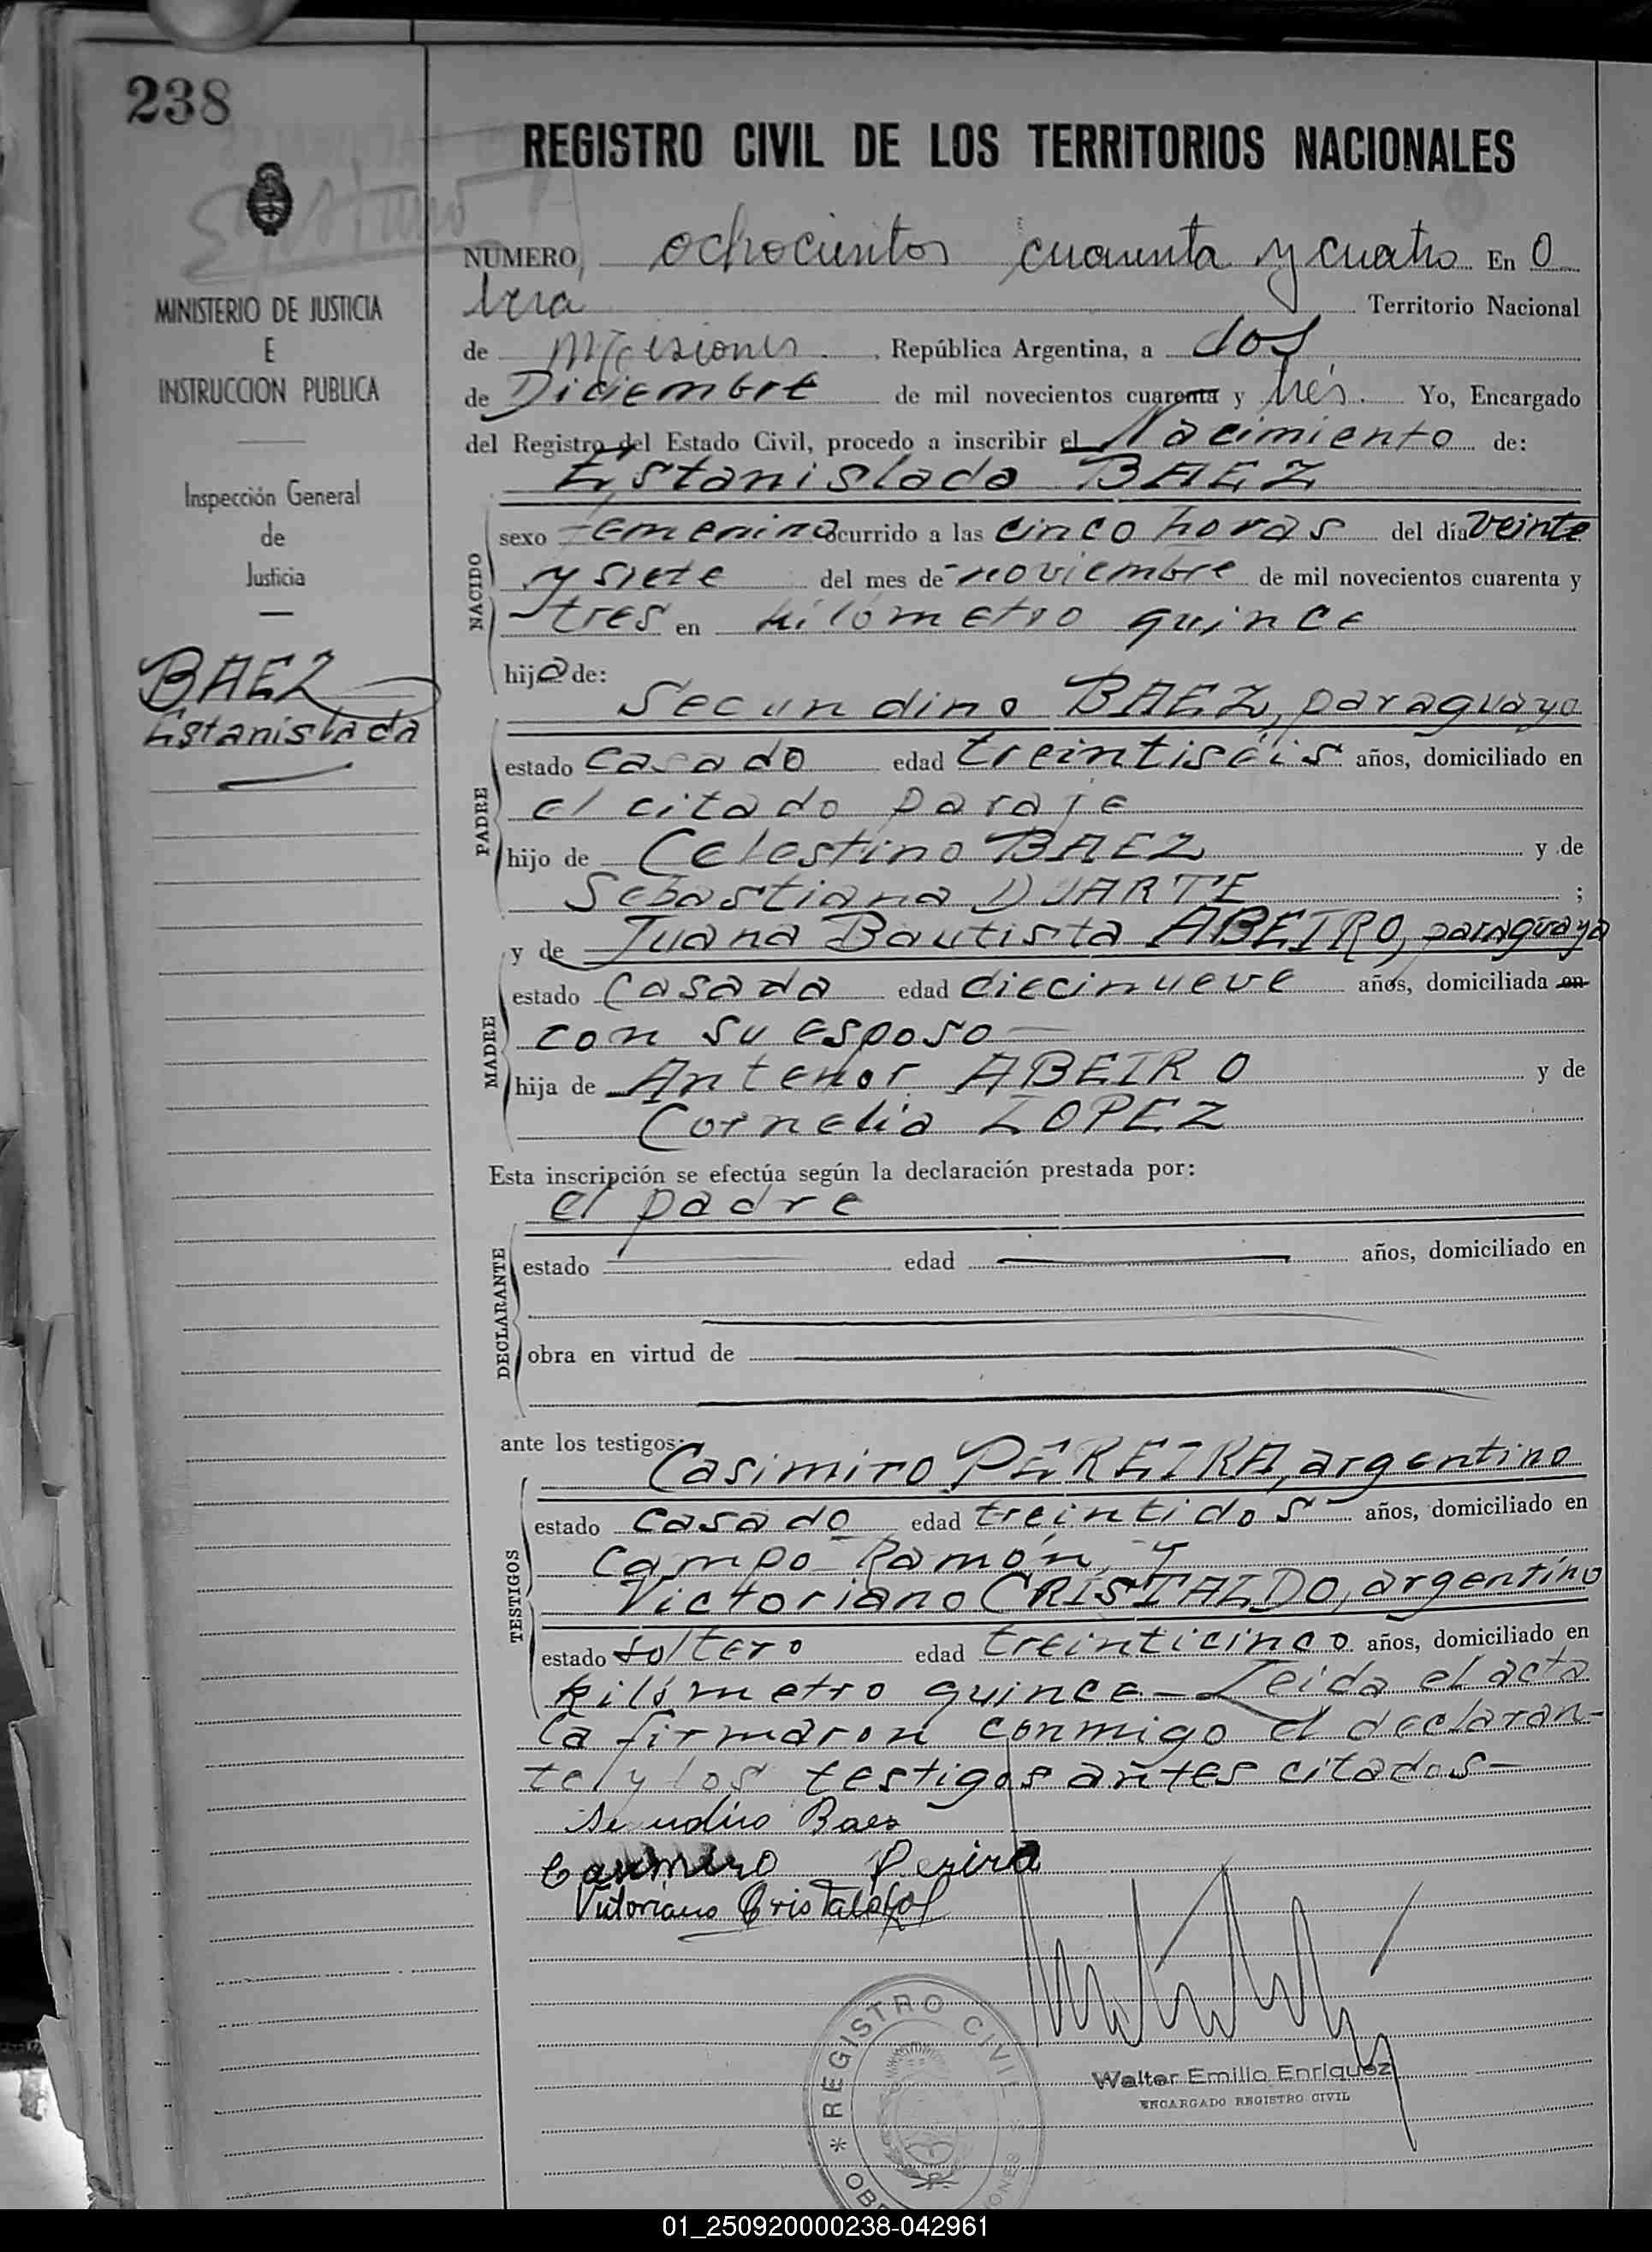 238
REGISTRO CIVIL DE LOS TERRITORIOS NACIONALES
MINISTERIO DE JUSTICIA
E
INSTRUCCION PUBLICA
Inspección General
de
Justicia
BAEZ
Estanislada
NUMERO ochocientos cuarenta y cuatro En O
bera Territorio Nacional
de Misiones, República Argentina, a dos
de Diciembre de mil novecientos cuarenta y trés. Yo, Encargado
del Registro del Estado Civil, procedo a inscribir el Nacimiento de:
Estanislada BAEZ
NACIDO
sexo femenino ocurrido a las cinco horas del día veinte
y siete del mes de noviembre de mil novecientos cuarenta y
tres en kilómetro quince
hija de:
Secundino BAEZ, paraguayo
PADRE
estado casado edad treintiséis años, domiciliado en
el citado paraje
hijo de Celestino BAEZ y de
Sebastiana DUARTE ;
y de Juana Bautista ABEIRO, paraguaya
MADRE
estado casada edad diecinueve años, domiciliada en
con su esposo
hija de Antenor ABEIRO y de
Cornelia LOPEZ
Esta inscripción se efectúa según la declaración prestada por:
el padre
DECLARANTE
estado edad años, domiciliado en
obra en virtud de
ante los testigos:
Casimiro PEREIRA, argentino
TESTIGOS
estado casado edad treintidos años, domiciliado en
Campo Ramón, y
Victoriano CRISTALDO, argentino
estado soltero edad treinticinco años, domiciliado en
kilómetro quince - Leida el acta
la firmaron conmigo el declaran-
te y los testigos antes citados-
Secundino Baez
Casimiro Pereira
Vitoriano Cristaldo
Walter Emilio Enriquez
ENCARGADO REGISTRO CIVIL
* REGISTRO CIVIL
01_250920000238-042961